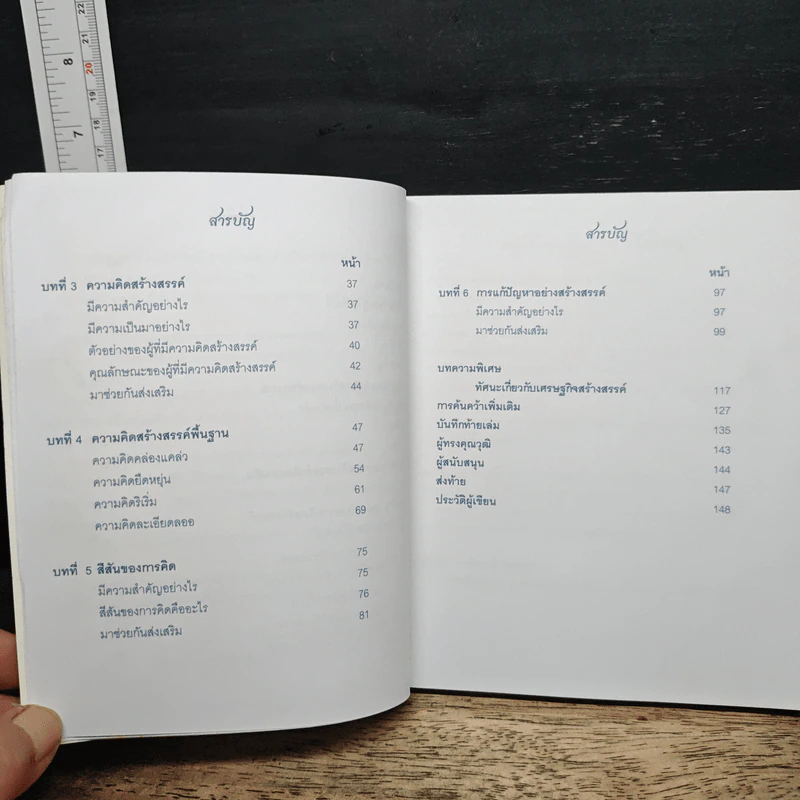 สารบัญ
หน้า
บทที่ 3 ความคิดสร้างสรรค์ 37
มีความสำคัญอย่างไร 37
มีความเป็นมาอย่างไร 37
ตัวอย่างของผู้ที่มีความคิดสร้างสรรค์ 40
คุณลักษณะของผู้ที่มีความคิดสร้างสรรค์ 42
มาช่วยกันส่งเสริม 44
บทที่ 4 ความคิดสร้างสรรค์พื้นฐาน 47
ความคิดคล่องแคล่ว 47
ความคิดยืดหยุ่น 54
ความคิดริเริ่ม 61
ความคิดละเอียดลออ 69
บทที่ 5 สีสันของการคิด 75
มีความสำคัญอย่างไร 75
สีสันของการคิดคืออะไร 76
มาช่วยกันส่งเสริม 81
สารบัญ
หน้า
บทที่ 6 การแก้ปัญหาอย่างสร้างสรรค์ 97
มีความสำคัญอย่างไร 97
มาช่วยกันส่งเสริม 99
บทความพิเศษ
ทัศนะเกี่ยวกับเศรษฐกิจสร้างสรรค์ 117
การค้นคว้าเพิ่มเติม 127
บันทึกท้ายเล่ม 135
ผู้ทรงคุณวุฒิ 143
ผู้สนับสนุน 144
ส่งท้าย 147
ประวัติผู้เขียน 148
8
7
22
21
20
19
18
17